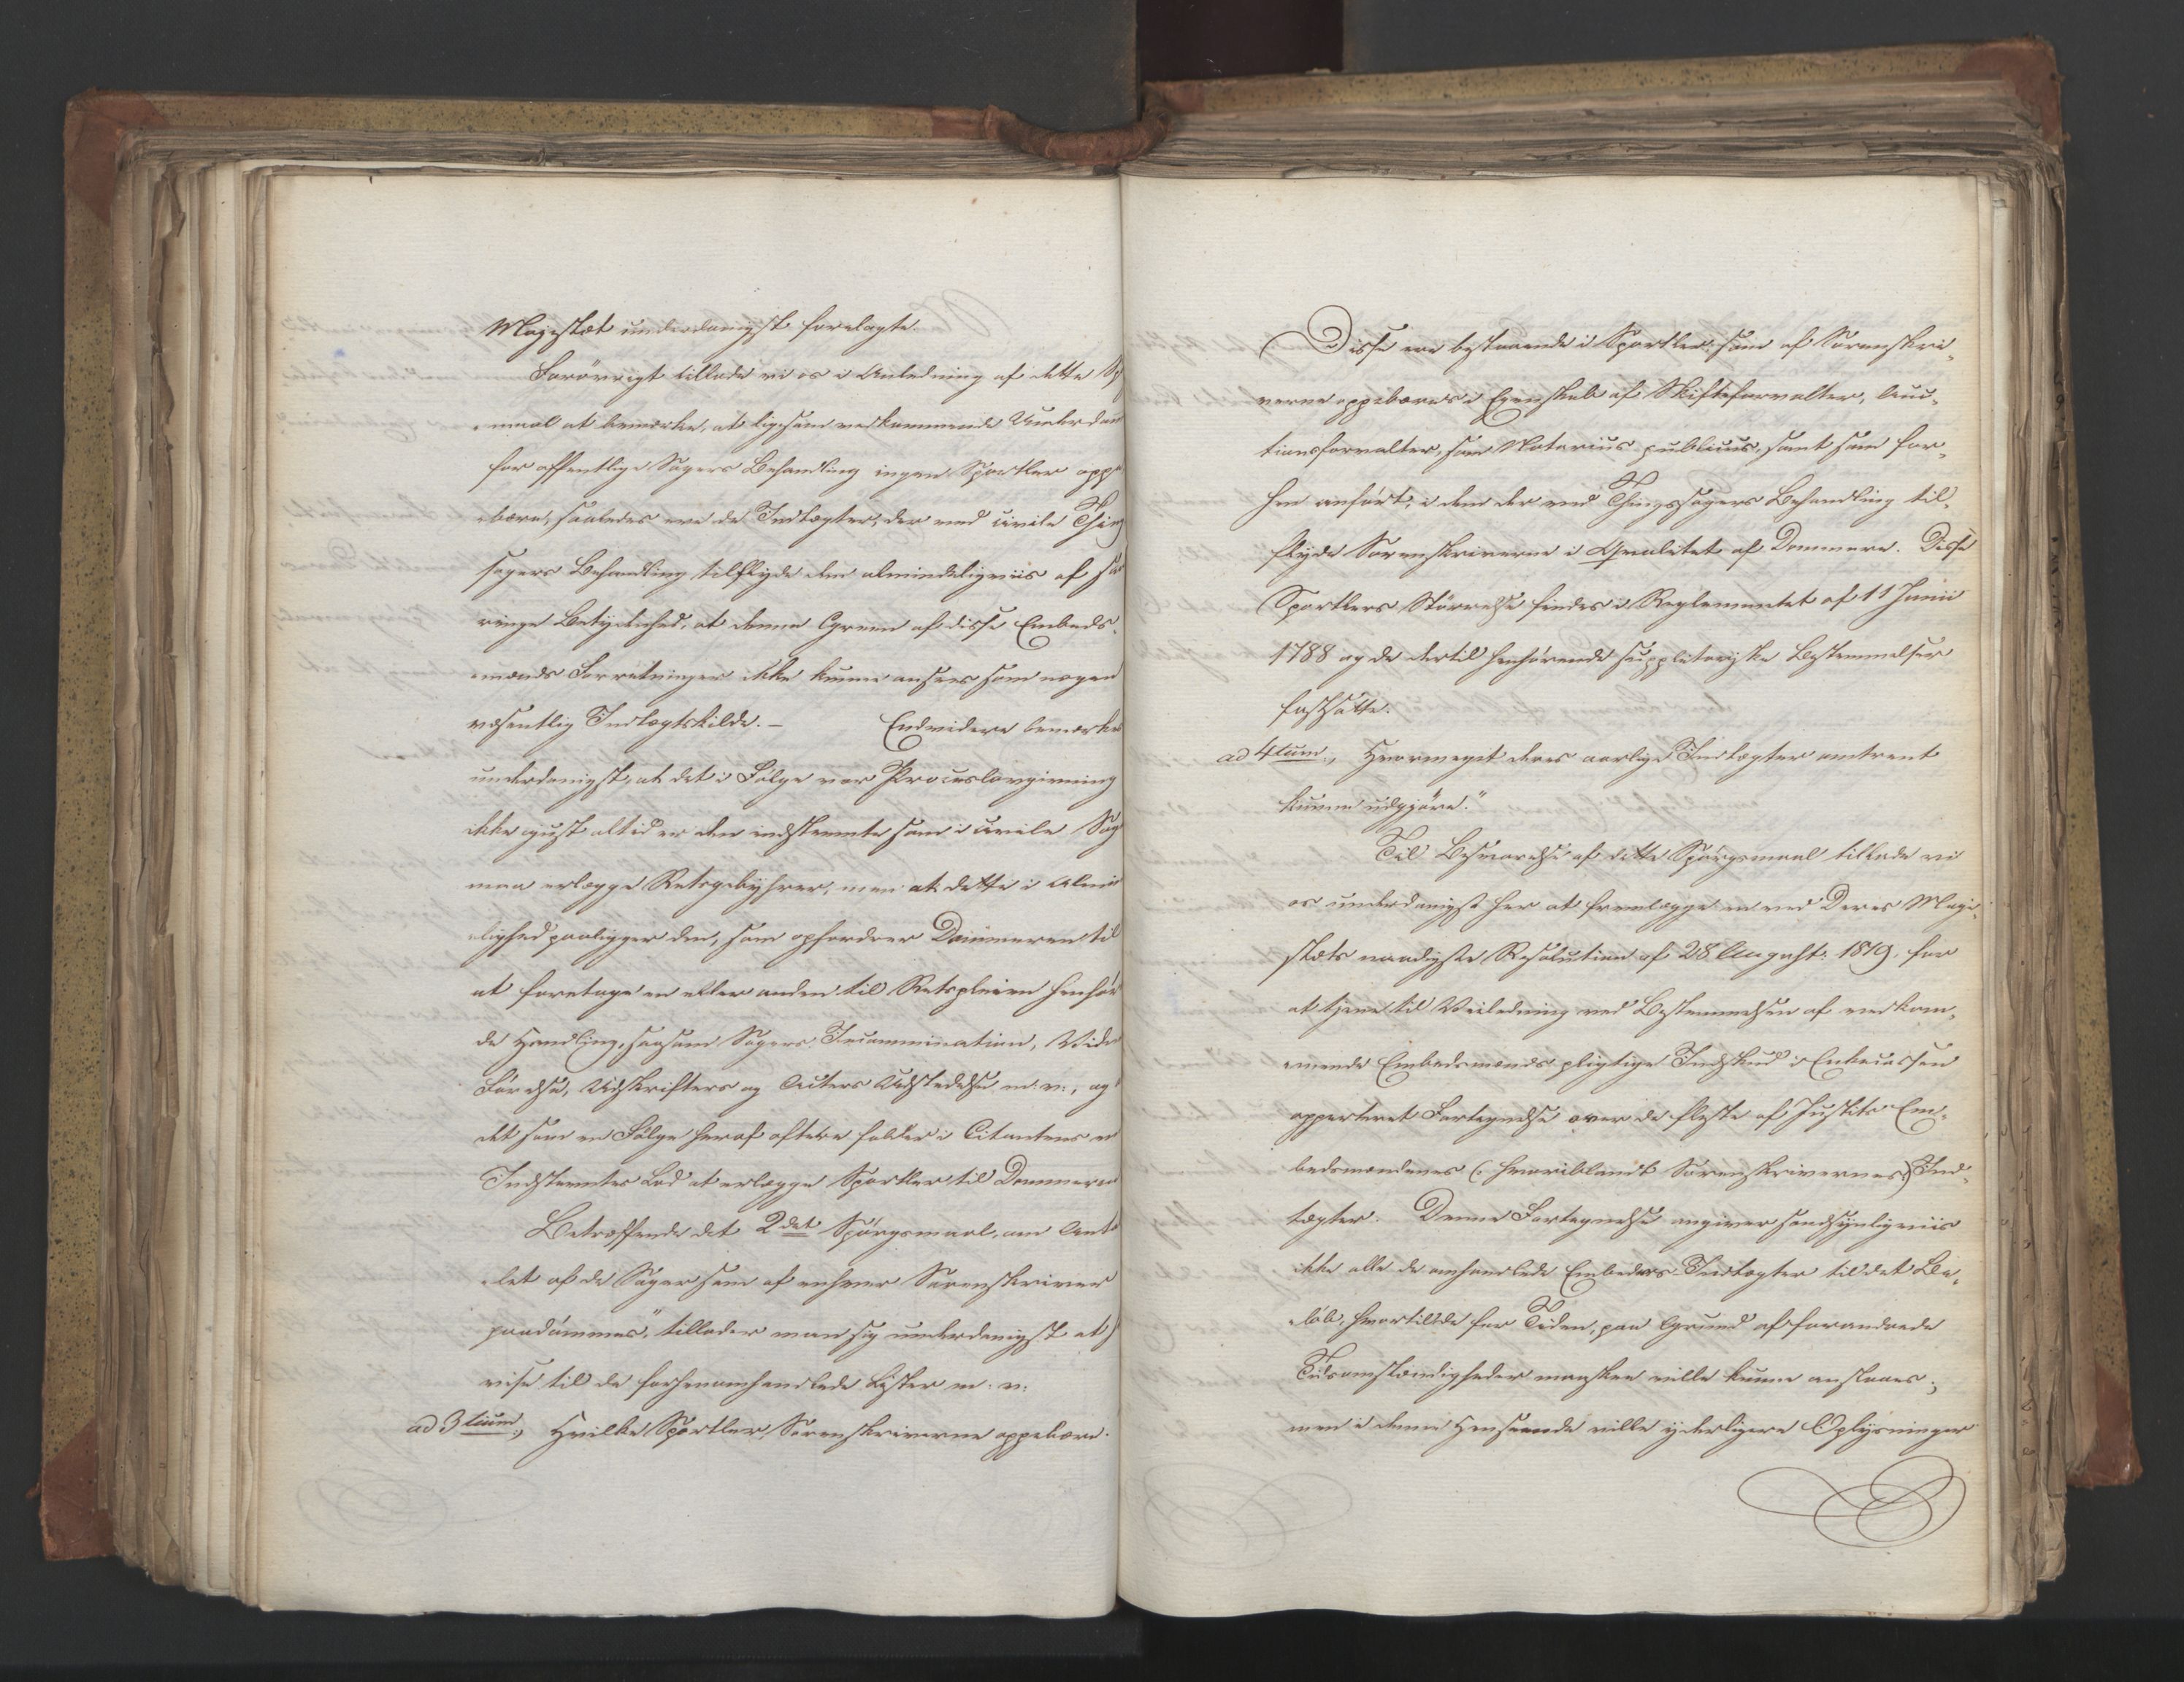 Majestæt underdanigst forelagte.
Forövrigt tillade vi os i Anledning af dette Sp
maal at bemærke, at ligesom vedkommende Underdom
for offentlige Sagers Behandling ingen Sportler oppe
bære, saaledes ere de Indtægter, der ved civile Thing
sagers Behandling tilflyde dem almindeligviis af saa
ringe Betydenhed, at denne Green af disse Embeds-
mænds Forretninger ikke kunne ansees som nogen
væsentlig Indtægtskilde. — Endvidere bemærkes
underdanigst, at det i Fölge vor Proceslovgivning
ikke just altid er den indstevnte som i civile Sag
maa erlægge Retsgebyhrer, men at dette i Almin
lighed paaligger den, som opfordrer Dommeren til
at foretage en eller anden til Retspleien henhör
de Handling, saasom Sagers Incammination, Vidne
Förelse, Udskrifters og Acters Udstedelse m: v:, og
det som en Fölge heraf oftere falder i Citantens e
Indstevntes Lod at erlægge Sportler til Dommeren
Betræffende det 2det Spörgsmaal, om Anta
let af de Sager som af enhver Sorenskriver
paadömmes", tillader man sig underdanigst at
vise til de forhenomhandlede Lister m: v:
ad 3tium, Hvilke Sportler Sorenskriverne oppebære.
Disse ere bestaaende i Sportler, som af Sorenskri-
verne oppebæres i Egenskab af Skifteforvalter, Auc-
tionsforvalter, som Notarius publicus, samt som for-
hen anfört, i dem der ved Thingssagers Behandling til-
flyde Sorenskriverne i Qvalitet af Dommere. Disse
Sportlers Störrelse findes i Reglementet af 11 Junii
1788 og de dertil henhörende suppletoriske Bestemmelser
fastsatte.
ad 4tum, Hvormeget deres aarlige Indtægter omtrent
kunne udgjöre."
Til Besvarelse af dette Spörgsmaal tillade vi
os underdanigst her at fremlægge en ved Deres Maje-
stæts naadigste Resolution af 28 August: 1819, for
at tjene til Veiledning ved Bestemmelsen af vedkom-
mende Embedsmænds pligtige Indskud i Enkecassen
approberet Fortegnelse over de fleste af Justits Em-
bedsmændenes (: hvoriblandt Sorenskrivernes) Ind-
tægter. Denne Fortegnelse angiver sandsynligviis
ikke alle de omhandlede Embeders Indtægter til det Be-
löb, hvortil de for Tiden, paa Grund af forandrede
Tidsomstændigheder maaskee ville kunne anslaaes;
men i denne Henseende ville yderligere Oplysninger